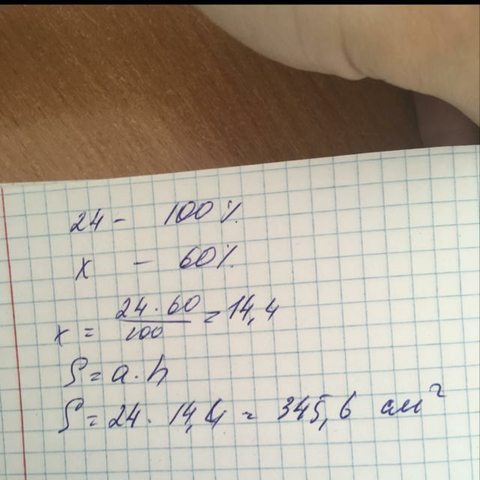 24 - 100%
x - 60%
x = 24 · 60 / 100 = 14,4
S = a · h
S = 24 · 14,4 = 345,6 см²